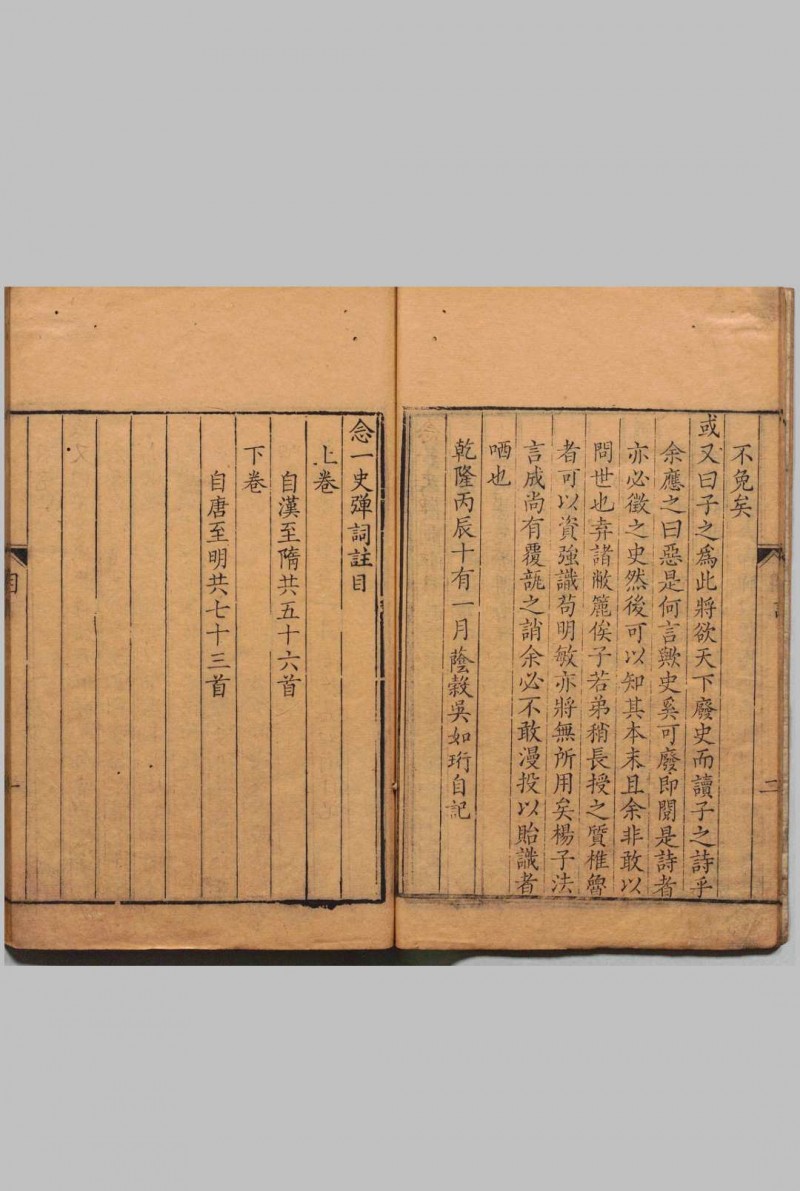 不免矣
或又曰子之爲此將欲天下廢史而讀子之詩乎
余應之曰惡是何言歟史奚可廢即閱是詩者
亦必徵之史然後可以知其本末且余非敢以
問世也弆諸敝簏俟子若弟稍長授之質椎魯
者可以資強識苟明敏亦將無所用矣楊子法
言成尚有覆瓿之誚余必不敢漫投以貽識者
哂也
乾隆丙辰十有一月蔭穀吳如珩自記
二
念一史彈詞註目
上卷
自漢至隋共五十六首
下卷
自唐至明共七十三首
目
一